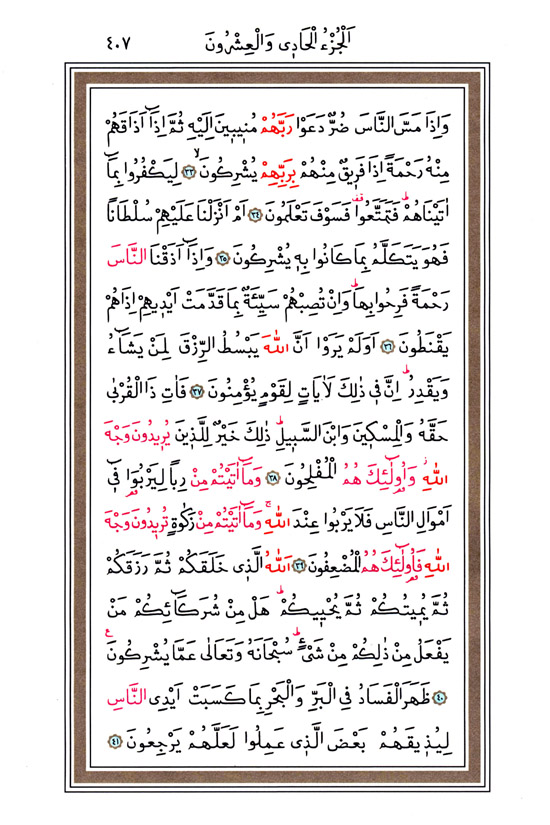 اَلْجُزْءُ الْحَادِى وَالْعِشْرُونَ ٤٠٧
وَاِذَا مَسَّ النَّاسَ ضُرٌّ دَعَوْا رَبَّهُمْ مُنٖيبٖينَ اِلَيْهِ ثُمَّ اِذَٓا اَذَاقَهُمْ
مِنْهُ رَحْمَةً اِذَا فَرٖيقٌ مِنْهُمْ بِرَبِّهِمْ يُشْرِكُونَۙ ﴿٣٣﴾ لِيَكْفُرُوا بِمَٓا
اٰتَيْنَاهُمْؕ فَتَمَتَّعُواࣞ فَسَوْفَ تَعْلَمُونَ ﴿٣٤﴾ اَمْ اَنْزَلْنَا عَلَيْهِمْ سُلْطَانًا
فَهُوَ يَتَكَلَّمُ بِمَا كَانُوا بِهٖ يُشْرِكُونَ ﴿٣٥﴾ وَاِذَٓا اَذَقْنَا النَّاسَ
رَحْمَةً فَرِحُوا بِهَاؕ وَاِنْ تُصِبْهُمْ سَيِّئَةٌ بِمَا قَدَّمَتْ اَيْدٖيهِمْ اِذَا هُمْ
يَقْنَطُونَ ﴿٣٦﴾ اَوَلَمْ يَرَوْا اَنَّ اللّٰهَ يَبْسُطُ الرِّزْقَ لِمَنْ يَشَٓاءُ
وَيَقْدِرُؕ اِنَّ فٖى ذٰلِكَ لَاٰيَاتٍ لِقَوْمٍ يُؤْمِنُونَ ﴿٣٧﴾ فَاٰتِ ذَا الْقُرْبٰى
حَقَّهُ وَالْمِسْكٖينَ وَابْنَ السَّبٖيلِؕ ذٰلِكَ خَيْرٌ لِلَّذٖينَ يُرٖيدُونَ وَجْهَ
اللّٰهِؗ وَاُو۬لٰٓئِكَ هُمُ الْمُفْلِحُونَ ﴿٣٨﴾ وَمَٓا اٰتَيْتُمْ مِنْ رِبًا لِيَرْبُوَ۬ا فٖٓى
اَمْوَالِ النَّاسِ فَلَا يَرْبُوا عِنْدَ اللّٰهِۚ وَمَٓا اٰتَيْتُمْ مِنْ زَكٰوةٍ تُرٖيدُونَ وَجْهَ
اللّٰهِ فَاُو۬لٰٓئِكَ هُمُ الْمُضْعِفُونَ ﴿٣٩﴾ اَللّٰهُ الَّذٖى خَلَقَكُمْ ثُمَّ رَزَقَكُمْ
ثُمَّ يُمٖيتُكُمْ ثُمَّ يُحْيٖيكُمْؕ هَلْ مِنْ شُرَكَٓائِكُمْ مَنْ
يَفْعَلُ مِنْ ذٰلِكُمْ مِنْ شَىْءٍؕ سُبْحَانَهُ وَتَعَالٰى عَمَّا يُشْرِكُونَ ع
﴿٤٠﴾ ظَهَرَ الْفَسَادُ فِى الْبَرِّ وَالْبَحْرِ بِمَا كَسَبَتْ اَيْدِى النَّاسِ
لِيُذٖيقَهُمْ بَعْضَ الَّذٖى عَمِلُوا لَعَلَّهُمْ يَرْجِعُونَ ﴿٤١﴾